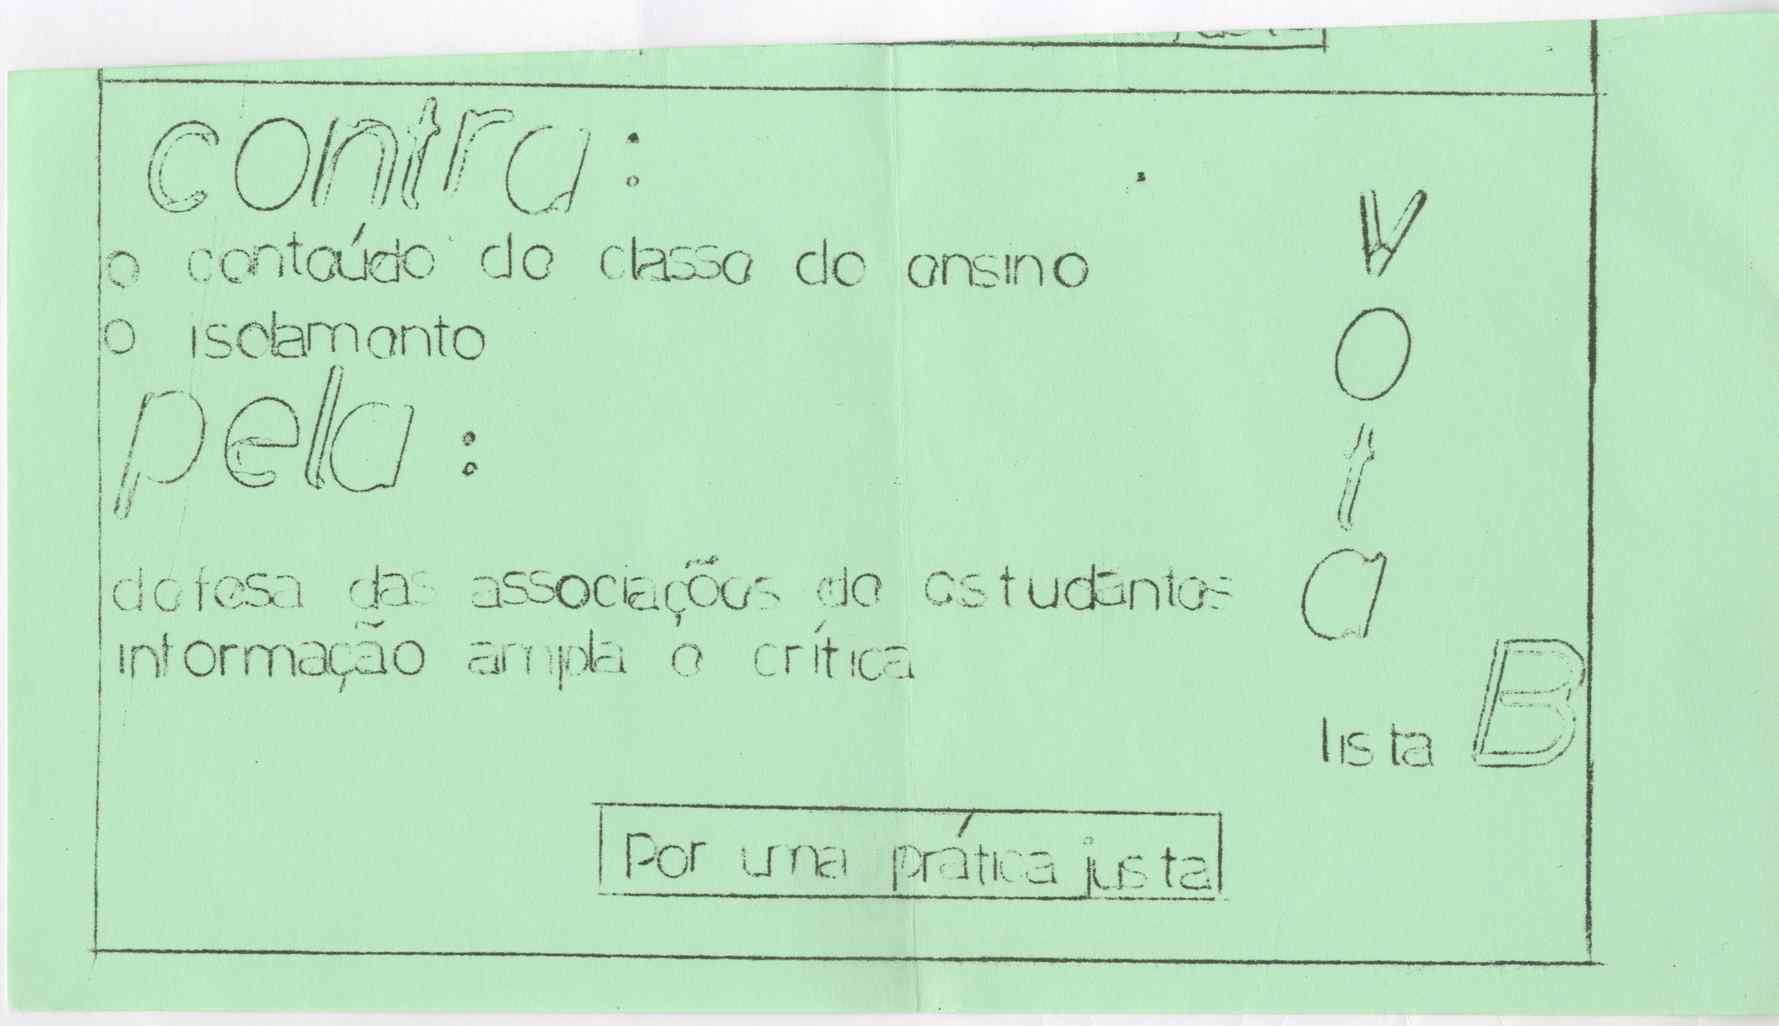 contra:
o conteúdo de classe do ensino
o isolamento
pela:
defesa das associações de estudantes
informação ampla e crítica
vota
lista B
Por uma prática justa